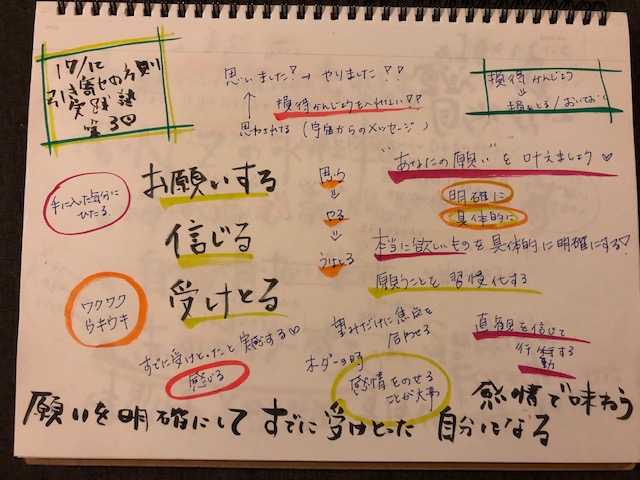 17/12
引き寄せの法則
実践塾
第3回
思いました?→やりました??
↑ 損得かんじょうを入れない??
思わされてる (宇宙からのメッセージ)
損得かんじょう
↓
損をとる/おいておく
手に入った気分に
ひたる。
お願いする
信じる
受けとる
思う
↓
やる
↓
うけとる
"あなたの願い"を叶えましょう♡
明確に
具体的に
本当に欲しいものを具体的に明確にする♡
願うことを習慣化する
ワクワク
ウキウキ
すでに受けとったと実感する♡
感じる
望みだけに焦点を
合わせる
オーダーの時
感情をのせる
ことが大事
直観を信じて
行動する
感情で味わう
願いを明確にしてすでに受けとった自分になる